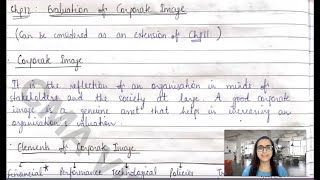 Chp12 : Evaluation of Corporate Image
(Can be considered as an extension of Chp11)
Corporate Image
It is the reflection of an organisation in minds of
stakeholders and the society at large. A good corporate
image is a genuine asset that helps in increasing an
organisation's valuation.
Elements of Corporate Image
Financial* Performance Technological Policies